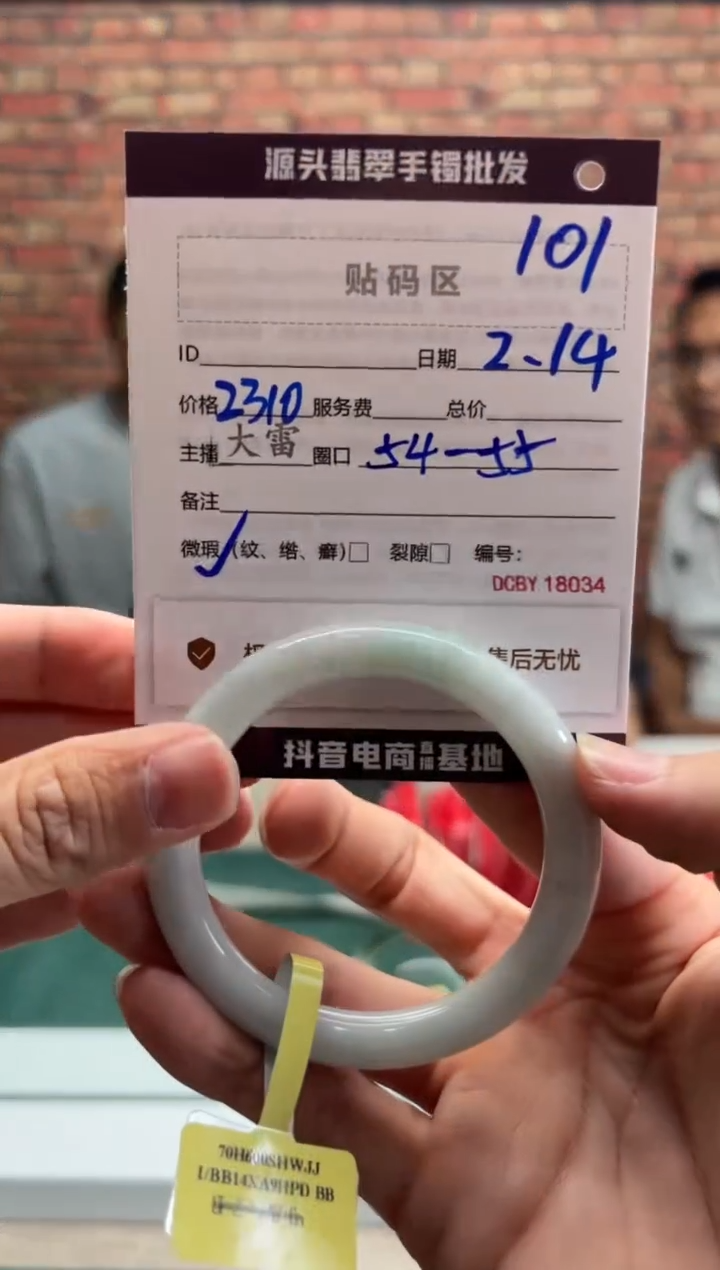 源头翡翠手镯批发
101
贴码区
ID 日期 2.14
价格2310 服务费 总价
主播 大雷 圈口 54-55
备注
微瑕(纹、绺、癣)□ 裂隙□ 编号:
DCBY 18034
售后无忧
抖音电商直播基地
70H600SHWJJ
I/BB14XA9HPD BB